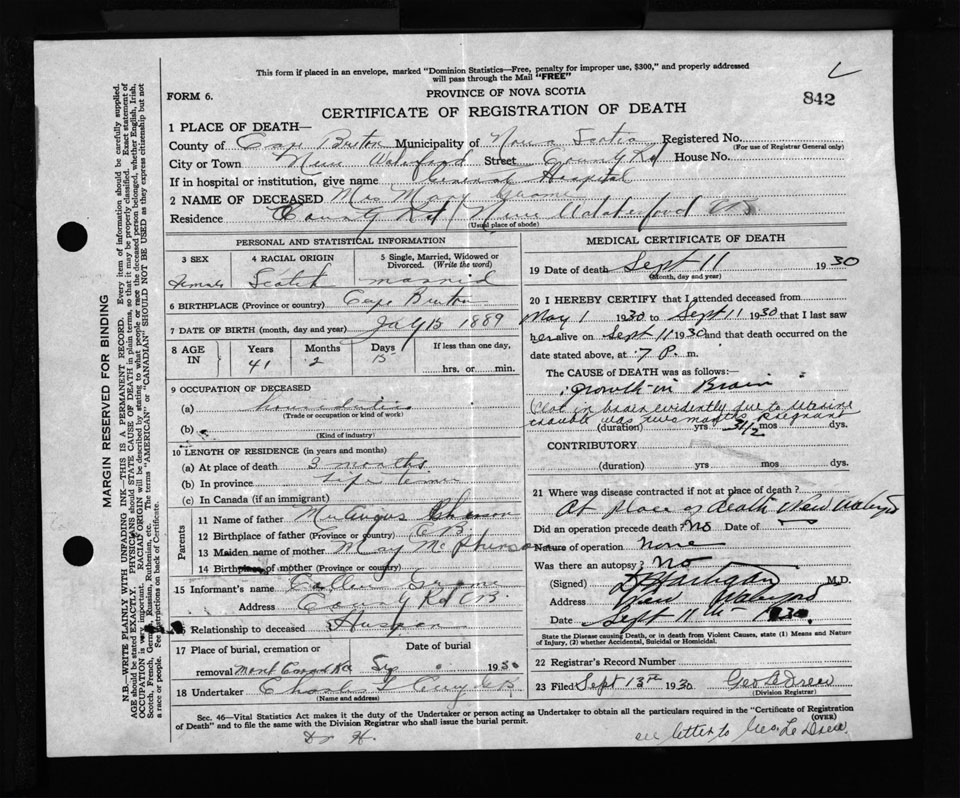 This form if placed in an envelope, marked "Dominion Statistics—Free, penalty for improper use, $300," and properly addressed
will pass through the Mail "FREE"
FORM 6.
PROVINCE OF NOVA SCOTIA
842
CERTIFICATE OF REGISTRATION OF DEATH
1 PLACE OF DEATH—
County of Cape Breton Municipality of Nova Scotia Registered No.
(For use of Registrar General only)
City or Town New Waterford Street County Rd House No.
If in hospital or institution, give name General Hospital
2 NAME OF DECEASED Mrs Mary
Residence County Rd New Waterford
(Usual place of abode)
PERSONAL AND STATISTICAL INFORMATION
3 SEX
4 RACIAL ORIGIN
5 Single, Married, Widowed or Divorced. (Write the word)
Female Scotch married
6 BIRTHPLACE (Province or country) Cape Breton
7 DATE OF BIRTH (month, day and year) 15 1889
8 AGE IN
Years Months Days If less than one day,
41 2 15 hrs. or min.
9 OCCUPATION OF DECEASED
(a)
(Trade or occupation or kind of work)
(b)
(Kind of industry)
10 LENGTH OF RESIDENCE (in years and months)
(a) At place of death 3 months
(b) In province Life time
(c) In Canada (if an immigrant)
Parents
11 Name of father Mr Angus
12 Birthplace of father (Province or country) C B
13 Maiden name of mother May McPherson
14 Birthplace of mother (Province or country)
15 Informant's name
Address County Rd CB
16 Relationship to deceased
17 Place of burial, cremation or removal Date of burial
1930
18 Undertaker Charles
(Name and address)
MEDICAL CERTIFICATE OF DEATH
19 Date of death Sept 11 1930
(Month, day and year)
20 I HEREBY CERTIFY that I attended deceased from
May 1 1930 to Sept 11 1930 that I last saw
her alive on Sept 11 1930 and that death occurred on
date stated above, at 7 P. m.
The CAUSE of DEATH was as follows:—
Growth in Brain
Clot in brain evidently due to uterine
trouble was months pregnant
(duration) yrs 3 1/2 mos dys.
CONTRIBUTORY
(duration) yrs mos dys.
21 Where was disease contracted if not at place of death?
At place of death New
Did an operation precede death? No Date of
Nature of operation None
Was there an autopsy? No
(Signed) Hartigan M.D.
Address New
Date Sept 11th 1930
State the Disease causing Death, or in death from Violent Causes, state (1) Means and Nature
of Injury, (2) whether Accidental, Suicidal or Homicidal.
22 Registrar's Record Number
23 Filed Sept 13th 1930 Geo LeDrew
(Division Registrar)
Sec. 46—Vital Statistics Act makes it the duty of the Undertaker or person acting as Undertaker to obtain all the particulars required in the "Certificate of Registration
of Death" and to file the same with the Division Registrar who shall issue the burial permit.
(OVER)
Dr H.
see letter to Geo. Le Drew
MARGIN RESERVED FOR BINDING
N.B.—WRITE PLAINLY WITH UNFADING INK—THIS IS A PERMANENT RECORD. Every item of information should be carefully supplied.
AGE should be stated EXACTLY. PHYSICIANS should STATE CAUSE OF DEATH in plain terms, so that it may be properly classified. Exact statement of
OCCUPATION is very important. RACIAL ORIGIN will be described by stating to what people or race the deceased person belonged, whether English, Irish,
Scotch, French, German, Russian, Ruthenian, etc. The terms "AMERICAN" or "CANADIAN" SHOULD NOT BE USED as they express citizenship but not
a race or people. See instructions on back of Certificate.